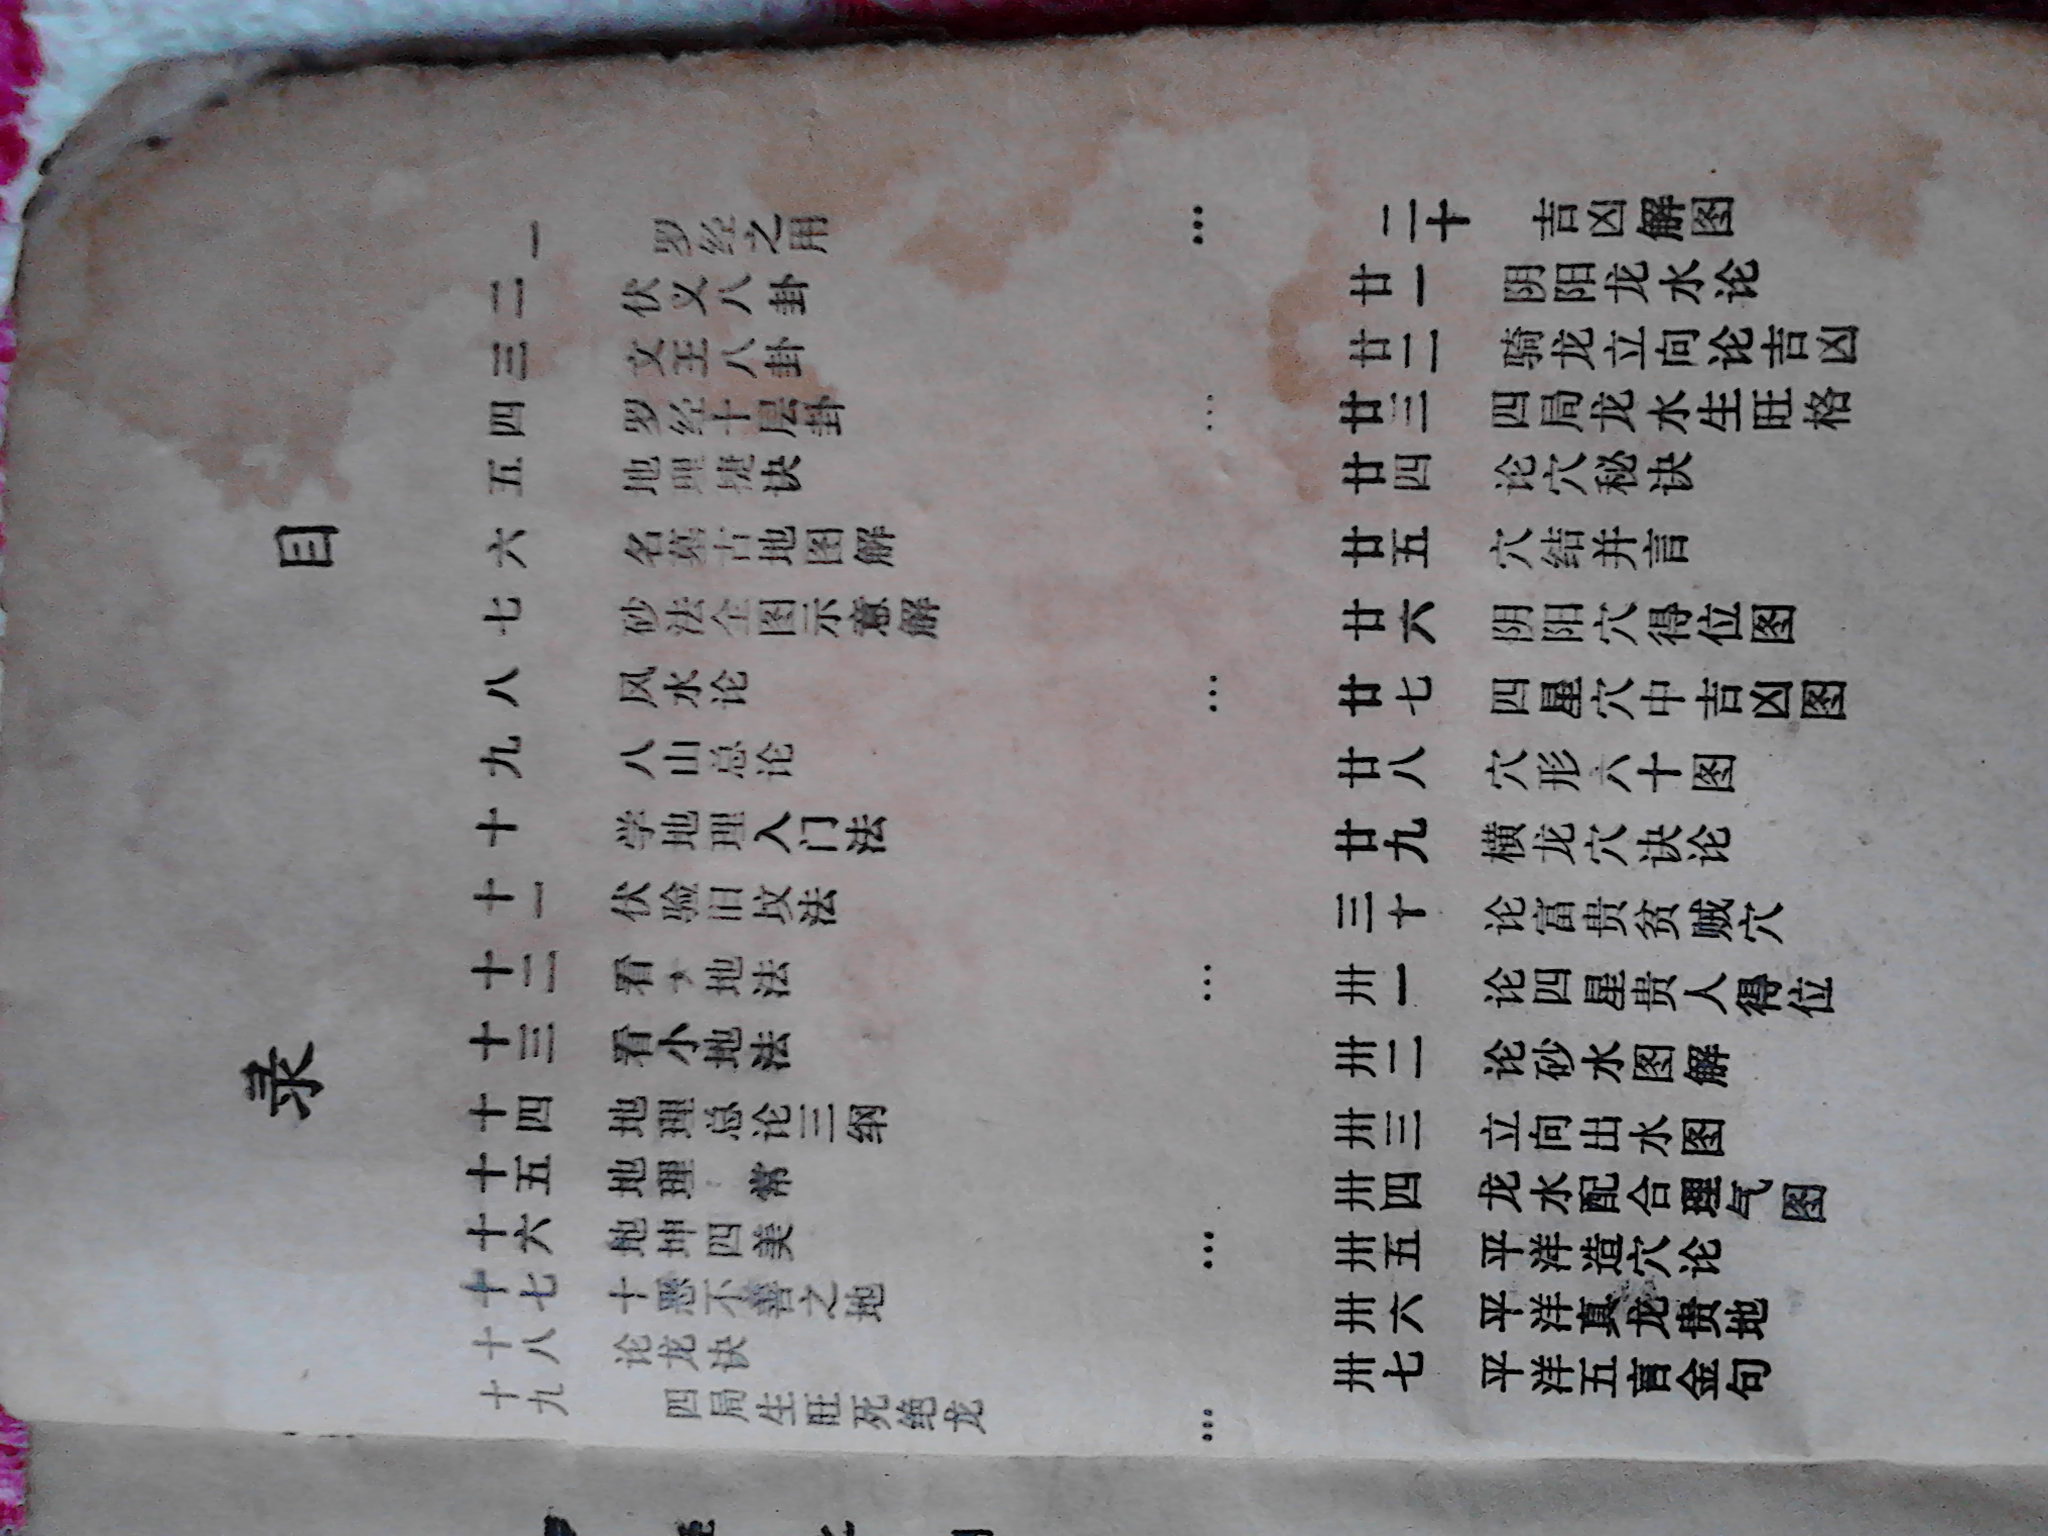 目 录
一 罗经之用
二 伏义八卦
三 文王八卦
四 罗经十层卦
五 地理捷诀
六 名墓古地图解
七 砂法全图示意解
八 风水论
九 八山总论
十 学地理入门法
十一 伏验旧坟法
十二 看 地法
十三 看小地法
十四 地理总论三纲
十五 地理 常
十六 地坤四美
十七 十恶不善之地
十八 论龙诀
十九 四局生旺死绝龙
二十 吉凶解图
廿一 阴阳龙水论
廿二 骑龙立向论吉凶
廿三 四局龙水生旺格
廿四 论穴秘诀
廿五 穴结并言
廿六 阴阳穴得位图
廿七 四星穴中吉凶图
廿八 穴形六十图
廿九 横龙穴诀论
三十 论富贵贫贼穴
卅一 论四星贵人得位
卅二 论砂水图解
卅三 立向出水图
卅四 龙水配合理气图
卅五 平洋造穴论
卅六 平洋真龙贵地
卅七 平洋五言金句